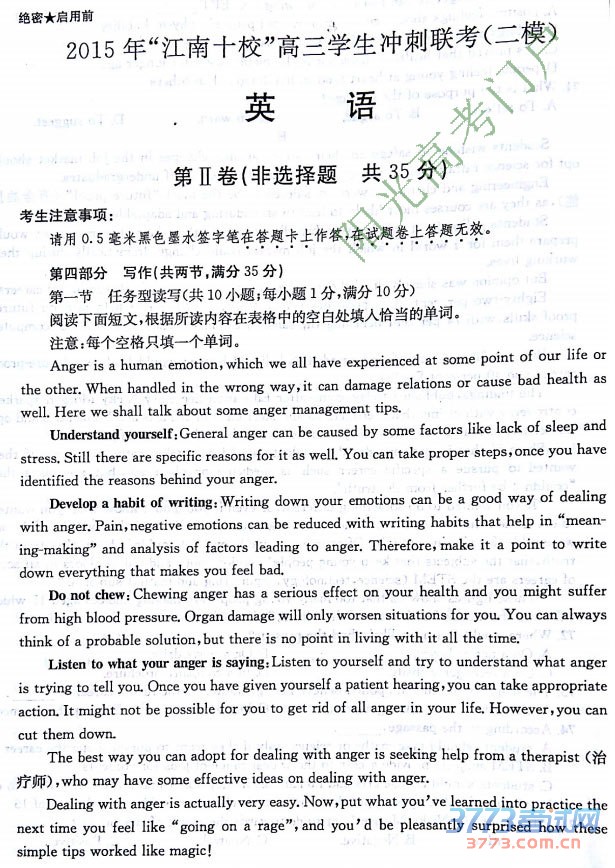 绝密★启用前
2015年“江南十校”高三学生冲刺联考(二模)
英 语
第Ⅱ卷(非选择题 共35分)
考生注意事项:
请用0.5毫米黑色墨水签字笔在答题卡上作答,在试题卷上答题无效。
第四部分 写作(共两节,满分35分)
第一节 任务型读写(共10小题;每小题1分,满分10分)
阅读下面短文,根据所读内容在表格中的空白处填入恰当的单词。
注意:每个空格只填一个单词。
Anger is a human emotion, which we all have experienced at some point of our life or
the other. When handled in the wrong way, it can damage relations or cause bad health as
well. Here we shall talk about some anger management tips.
Understand yourself: General anger can be caused by some factors like lack of sleep and
stress. Still there are specific reasons for it as well. You can take proper steps, once you have
identified the reasons behind your anger.
Develop a habit of writing: Writing down your emotions can be a good way of dealing
with anger. Pain, negative emotions can be reduced with writing habits that help in “mean-
ing-making” and analysis of factors leading to anger. Therefore, make it a point to write
down everything that makes you feel bad.
Do not chew: Chewing anger has a serious effect on your health and you might suffer
from high blood pressure. Organ damage will only worsen situations for you. You can always
think of a probable solution, but there is no point in living with it all the time.
Listen to what your anger is saying: Listen to yourself and try to understand what anger
is trying to tell you. Once you have given yourself a patient hearing, you can take appropriate
action. It might not be possible for you to get rid of all anger in your life. However, you can
cut them down.
The best way you can adopt for dealing with anger is seeking help from a therapist (治
疗师), who may have some effective ideas on dealing with anger.
Dealing with anger is actually very easy. Now, put what you've learned into practice the
next time you feel like “going on a rage”, and you'd be pleasantly surprised how these
simple tips worked like magic!
阳光高考门户
3773考试网
3773.com.cn